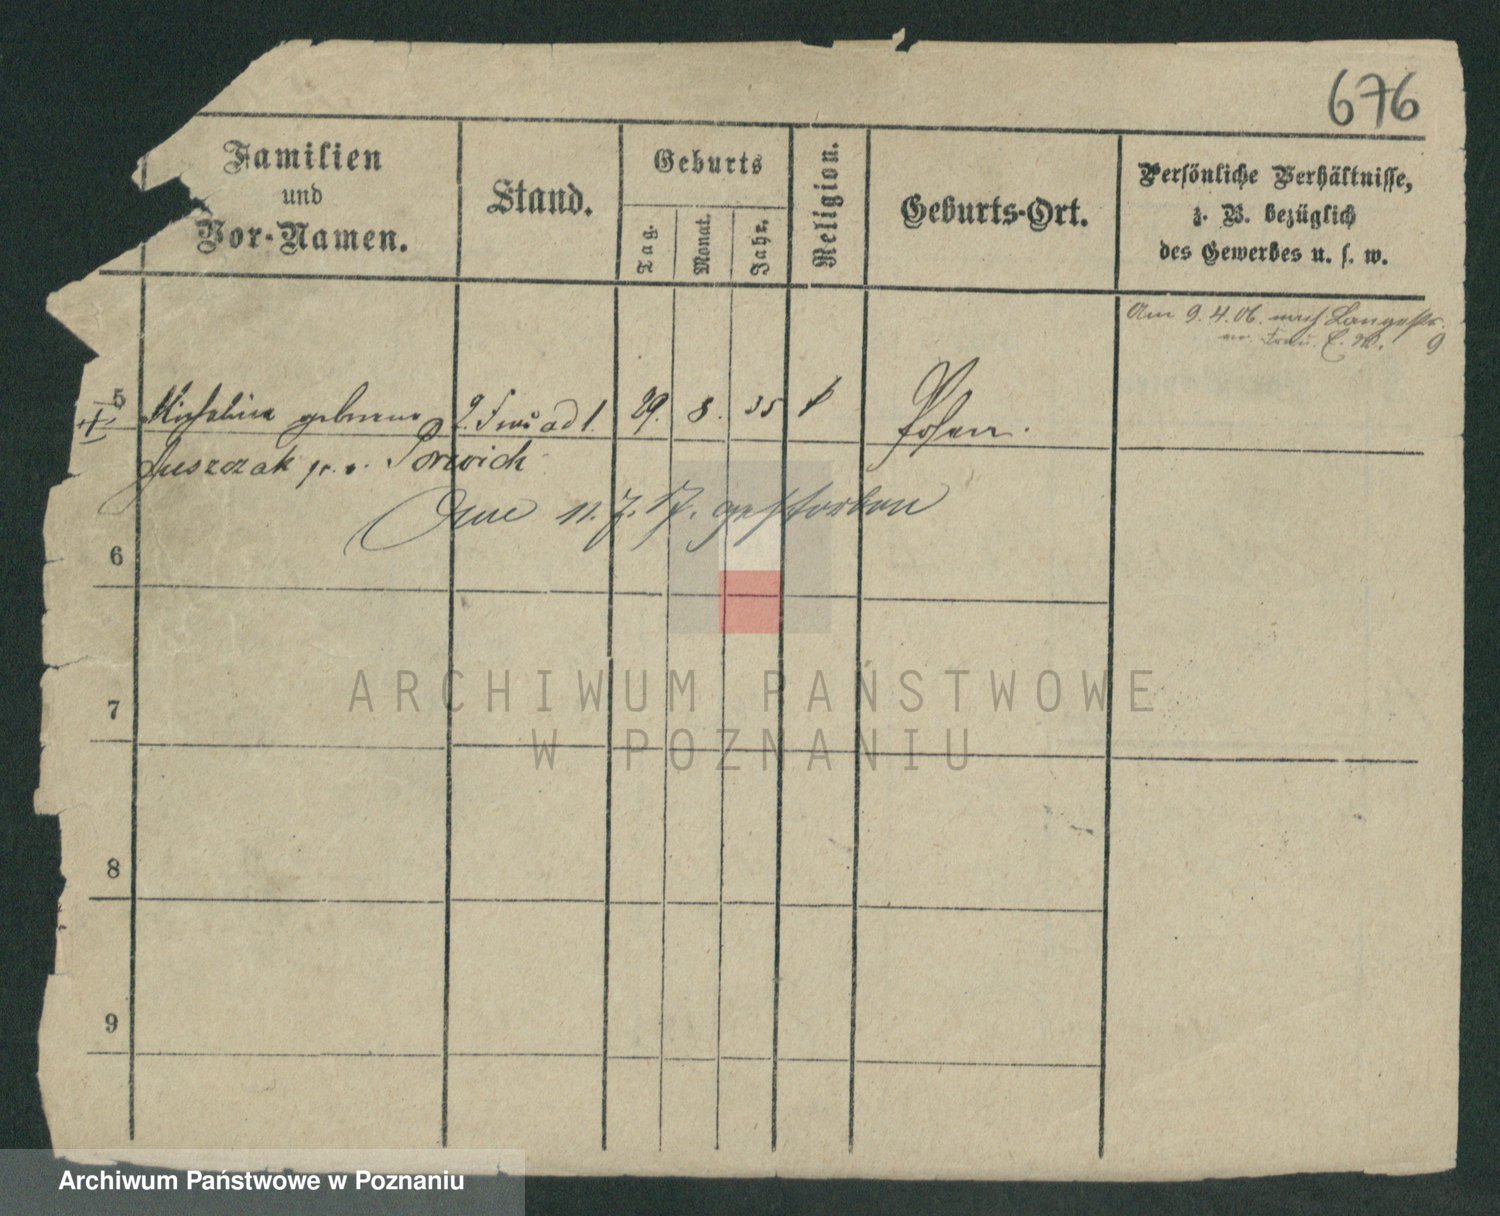 676
Familien
und
Vor-Namen.
Stand.
Geburts
Tag.
Monat.
Jahr.
Religion.
Geburts-Ort.
Persönliche Verhältnisse,
z. B. bezüglich
des Gewerbes u. s. w.
Am 9.4.06. nach Langestr. 9
5 Michalina geborene 2. Frau ad 1. 29. 8. 35 k Posen.
Juszczak
Am 11.7.17. gestorben
6
7
8
9
ARCHIWUM PAŃSTWOWE
W POZNANIU
Archiwum Państwowe w Poznaniu